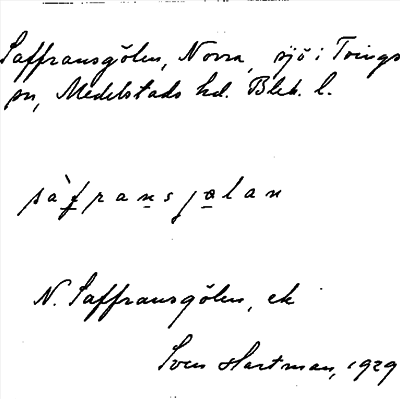 Saffransgölen, Norra, sjö i Tvings
sn, Medelstads hd. Blek. l.
sàfransjølan
N. Saffransgölen, ek
Sven Hartman, 1929